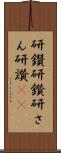 研鑽研鑚研さ
ん研讃